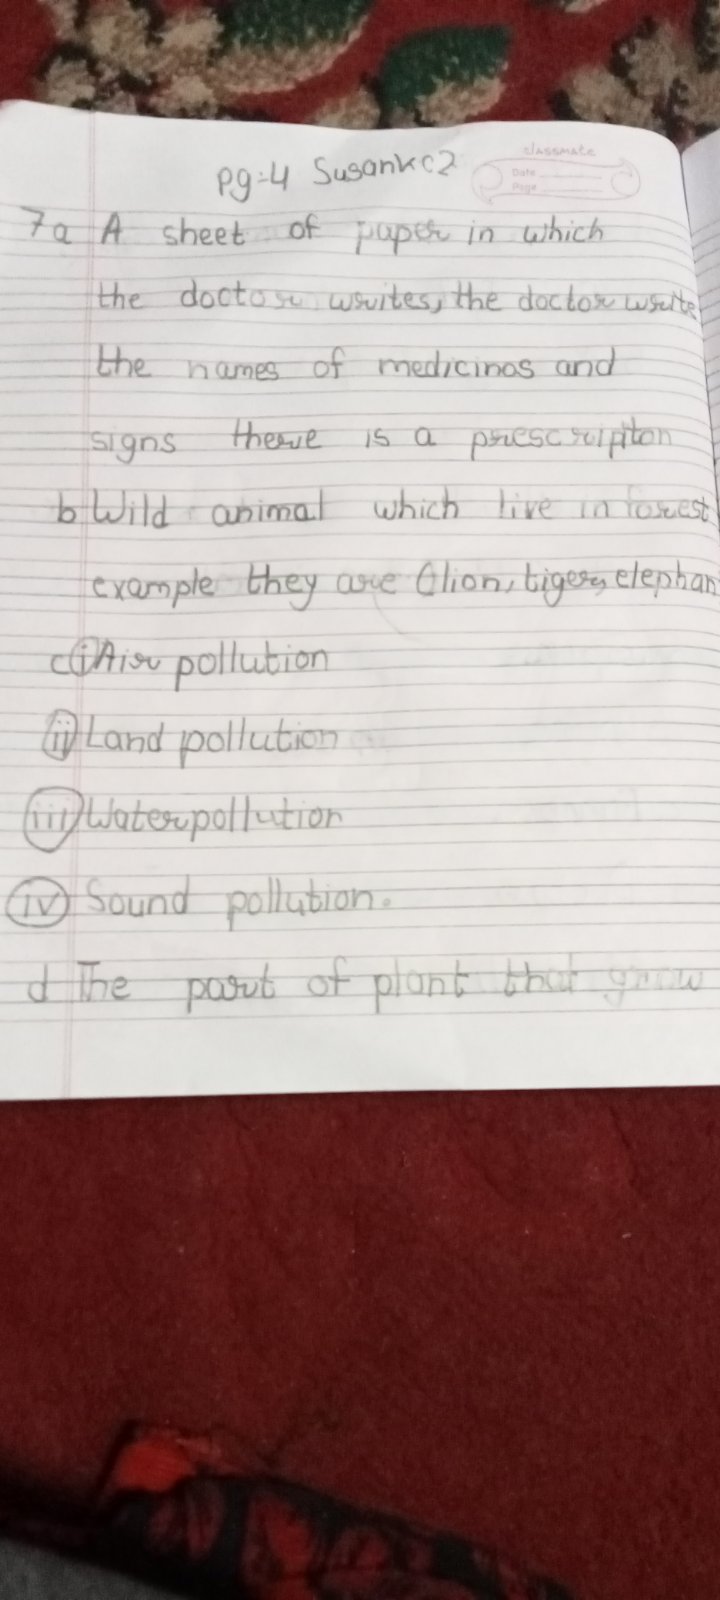 pg-4 Susank c2
classmate
Date
Page
7a A sheet of paper in which
the doctor writes, the doctor write
the names of medicinos and
signs there is a prescripiton
b Wild animal which live in forest
example they are (lion, tiger, elephan
c i Air pollution
ii Land pollution
iii Water pollution
iv Sound pollution.
d The part of plant that grow